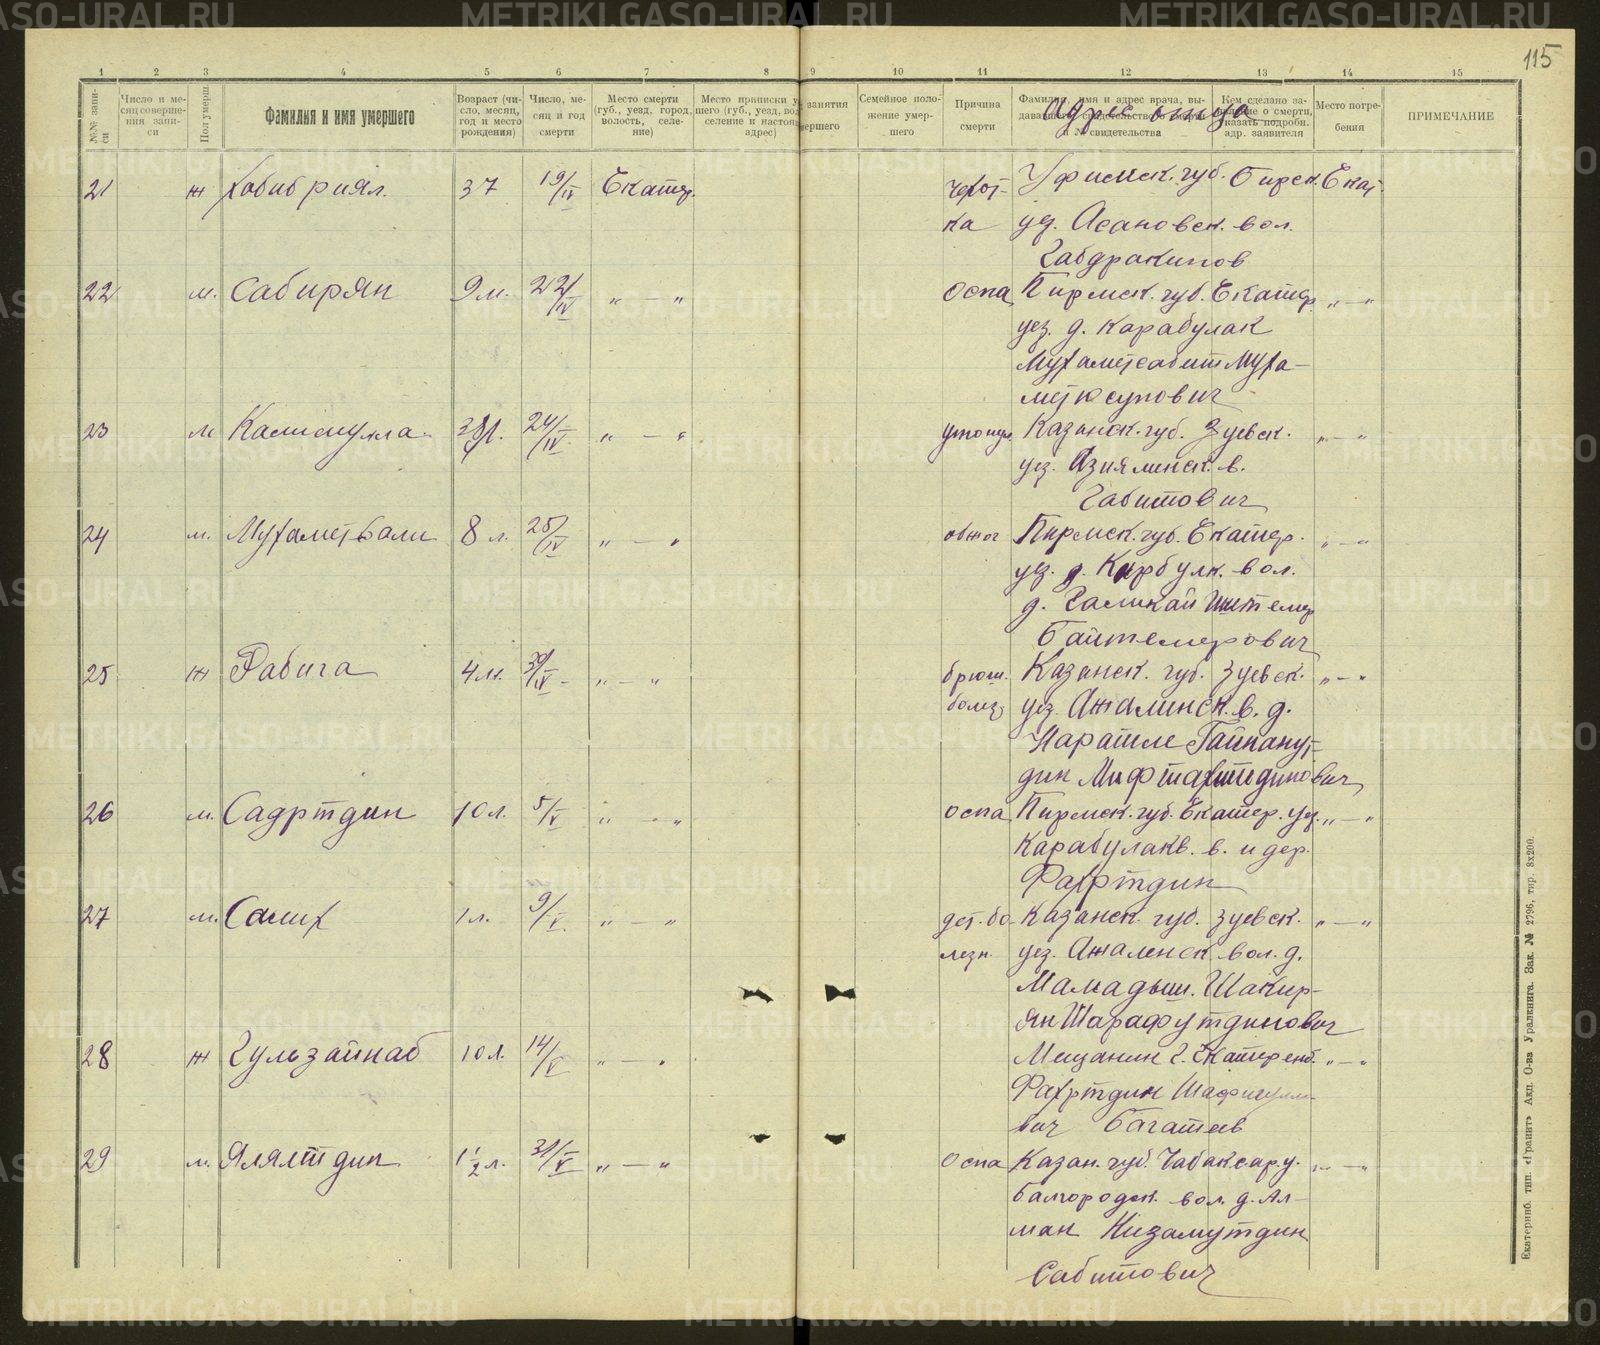 METRIKI.GASO-URAL.RU
115
1 2 3 4 5 6 7 8 9 10 11 12 13 14 15
№№ записи
Число и месяц совершения записи
Пол умерш.
Фамилия и имя умершего
Возраст (число, месяц, год и место рождения)
Число, месяц и год смерти
Место смерти (губ., уезд, город, волость, селение)
Место приписки
занятия
Семейное положение умершего
Причина смерти
Адрес отца
Место погребения
ПРИМЕЧАНИЕ
21 ж Хабибриял. 37 19/IV Екатер. чехот- Уфимск. губ. Бирск. Екат.
ка уез. Асановск. вол.
Габдракипов
22 м. Сабирян 9 м. 22/IV „ — „ Оспа Пирмск. губ. Екатер. „ — „
уез. д. Карабулак
Мухаметсабит Муха-
метюсупович
23 м Калимулла 24/IV „ — „ утонул. Казанск. губ. Зуевск. „ — „
уез. Азиялинск. в.
Габитович
24 м. Мухаметвали 8 л. 25/IV „ — „ ожог Пирмск. губ. Екатер. „ — „
уез. д. Карбулк. вол.
д. Галикай
Байтемерович
25 ж Рабига 4 м. 30/IV „ — „ брюш. Казанск. губ. Зуевск. „ — „
болез. уез. Ажалинск. в. д.
Наратле Гайнанут-
дин Мифтахитдинович
26 м. Садртдин 10 л. 5/V „ — „ оспа Пирмск. губ. Екатер. уез. „ — „
Карабулакв. в. и дер.
Фахртдин
27 м. Салих 1 л. 9/V „ — „ дет. бо- Казанск. губ. Зуевск. „ — „
лезн. уез. Ажаленск вол. д.
Мамадыш. Шакир-
ян Шарафутдинович
28 ж Гульзайнаб 10 л. 14/V „ — „ Мещанин г. Екатеренб. „ — „
Фахртдин Шафигулл-
вич Багатеев
29 м. Ялялтдин 1½ л. 31/V „ — „ Оспа Казан. губ. Чабаксар. у. „ — „
Балгородск. вол. д. Ал-
ман Низамутдин
Сабитович
Екатеринб. тип. «Гранит» Акц. О-ва Уралкнига. Зак. № 2796, тир. 8х200.